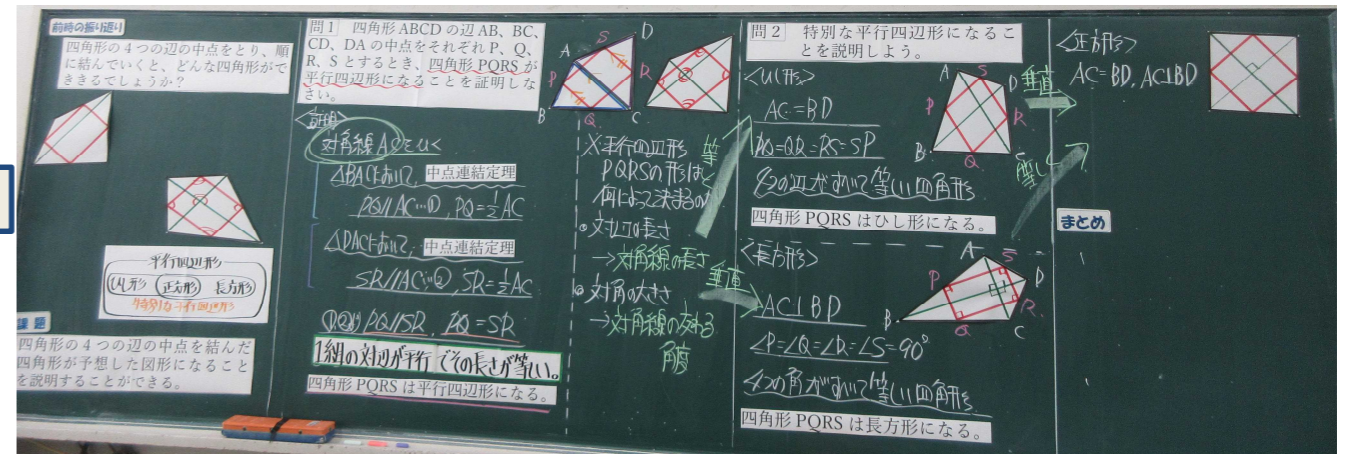 前時の振り返り
四角形の4つの辺の中点をとり、順
に結んでいくと、どんな四角形がで
ききるでしょうか？
平行四辺形
ひし形 正方形 長方形
特別な平行四辺形
課題
四角形の4つの辺の中点を結んだ
四角形が予想した図形になること
を説明することができる。
問1 四角形ABCDの辺AB、BC、
CD、DAの中点をそれぞれP、Q、
R、Sとするとき、四角形PQRSが
平行四辺形になることを証明しな
さい。
<証明>
対角線ACをひく
△BACにおいて、中点連結定理
PQ//AC…①, PQ=1/2AC
△DACにおいて、中点連結定理
SR//AC…②, SR=1/2AC
①,②より PQ//SR, PQ=SR
1組の対辺が平行でその長さが等しい。
四角形PQRSは平行四辺形になる。
A S D
P R
B Q C
※平行四辺形
PQRSの形は
何によって決まるのか
・対辺の長さ
→対角線の長さ
・対角の大きさ
→対角線の交わる
角度
等しく
垂直
問2 特別な平行四辺形になるこ
とを説明しよう。
<ひし形>
AC=BD
PQ=QR=RS=SP
4つの辺がすべて等しい四角形
四角形PQRSはひし形になる。
A S D
P R
B Q C
垂直
等しく
<長方形>
AC⊥BD
∠P=∠Q=∠R=∠S=90°
4つの角がすべて等しい四角形
四角形PQRSは長方形になる。
A S
P D
R
B Q C
<正方形>
AC=BD, AC⊥BD
まとめ